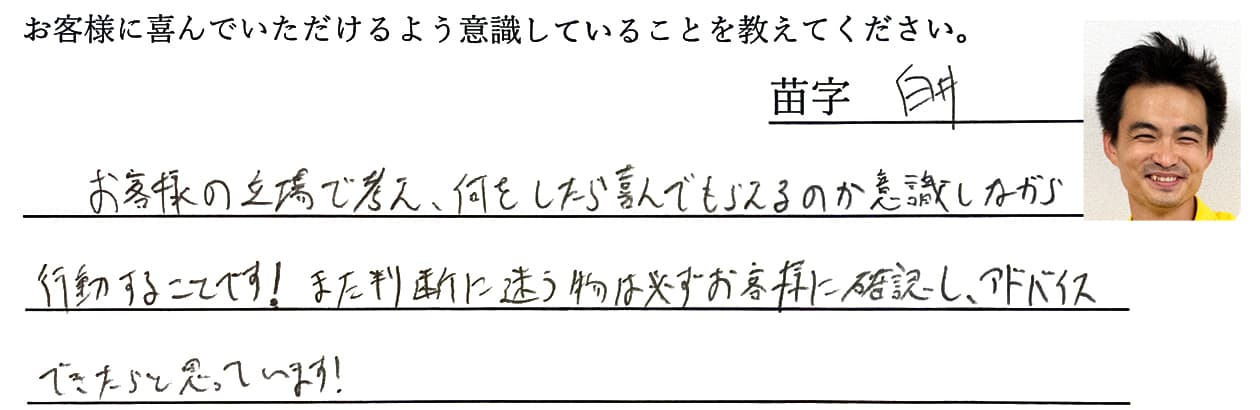 お客様に喜んでいただけるよう意識していることを教えてください。
苗字 白井
お客様の立場で考え、何をしたら喜んでもらえるのか意識しながら
行動することです！また判断に迷う物は必ずお客様に確認し、アドバイス
できたらと思っています！